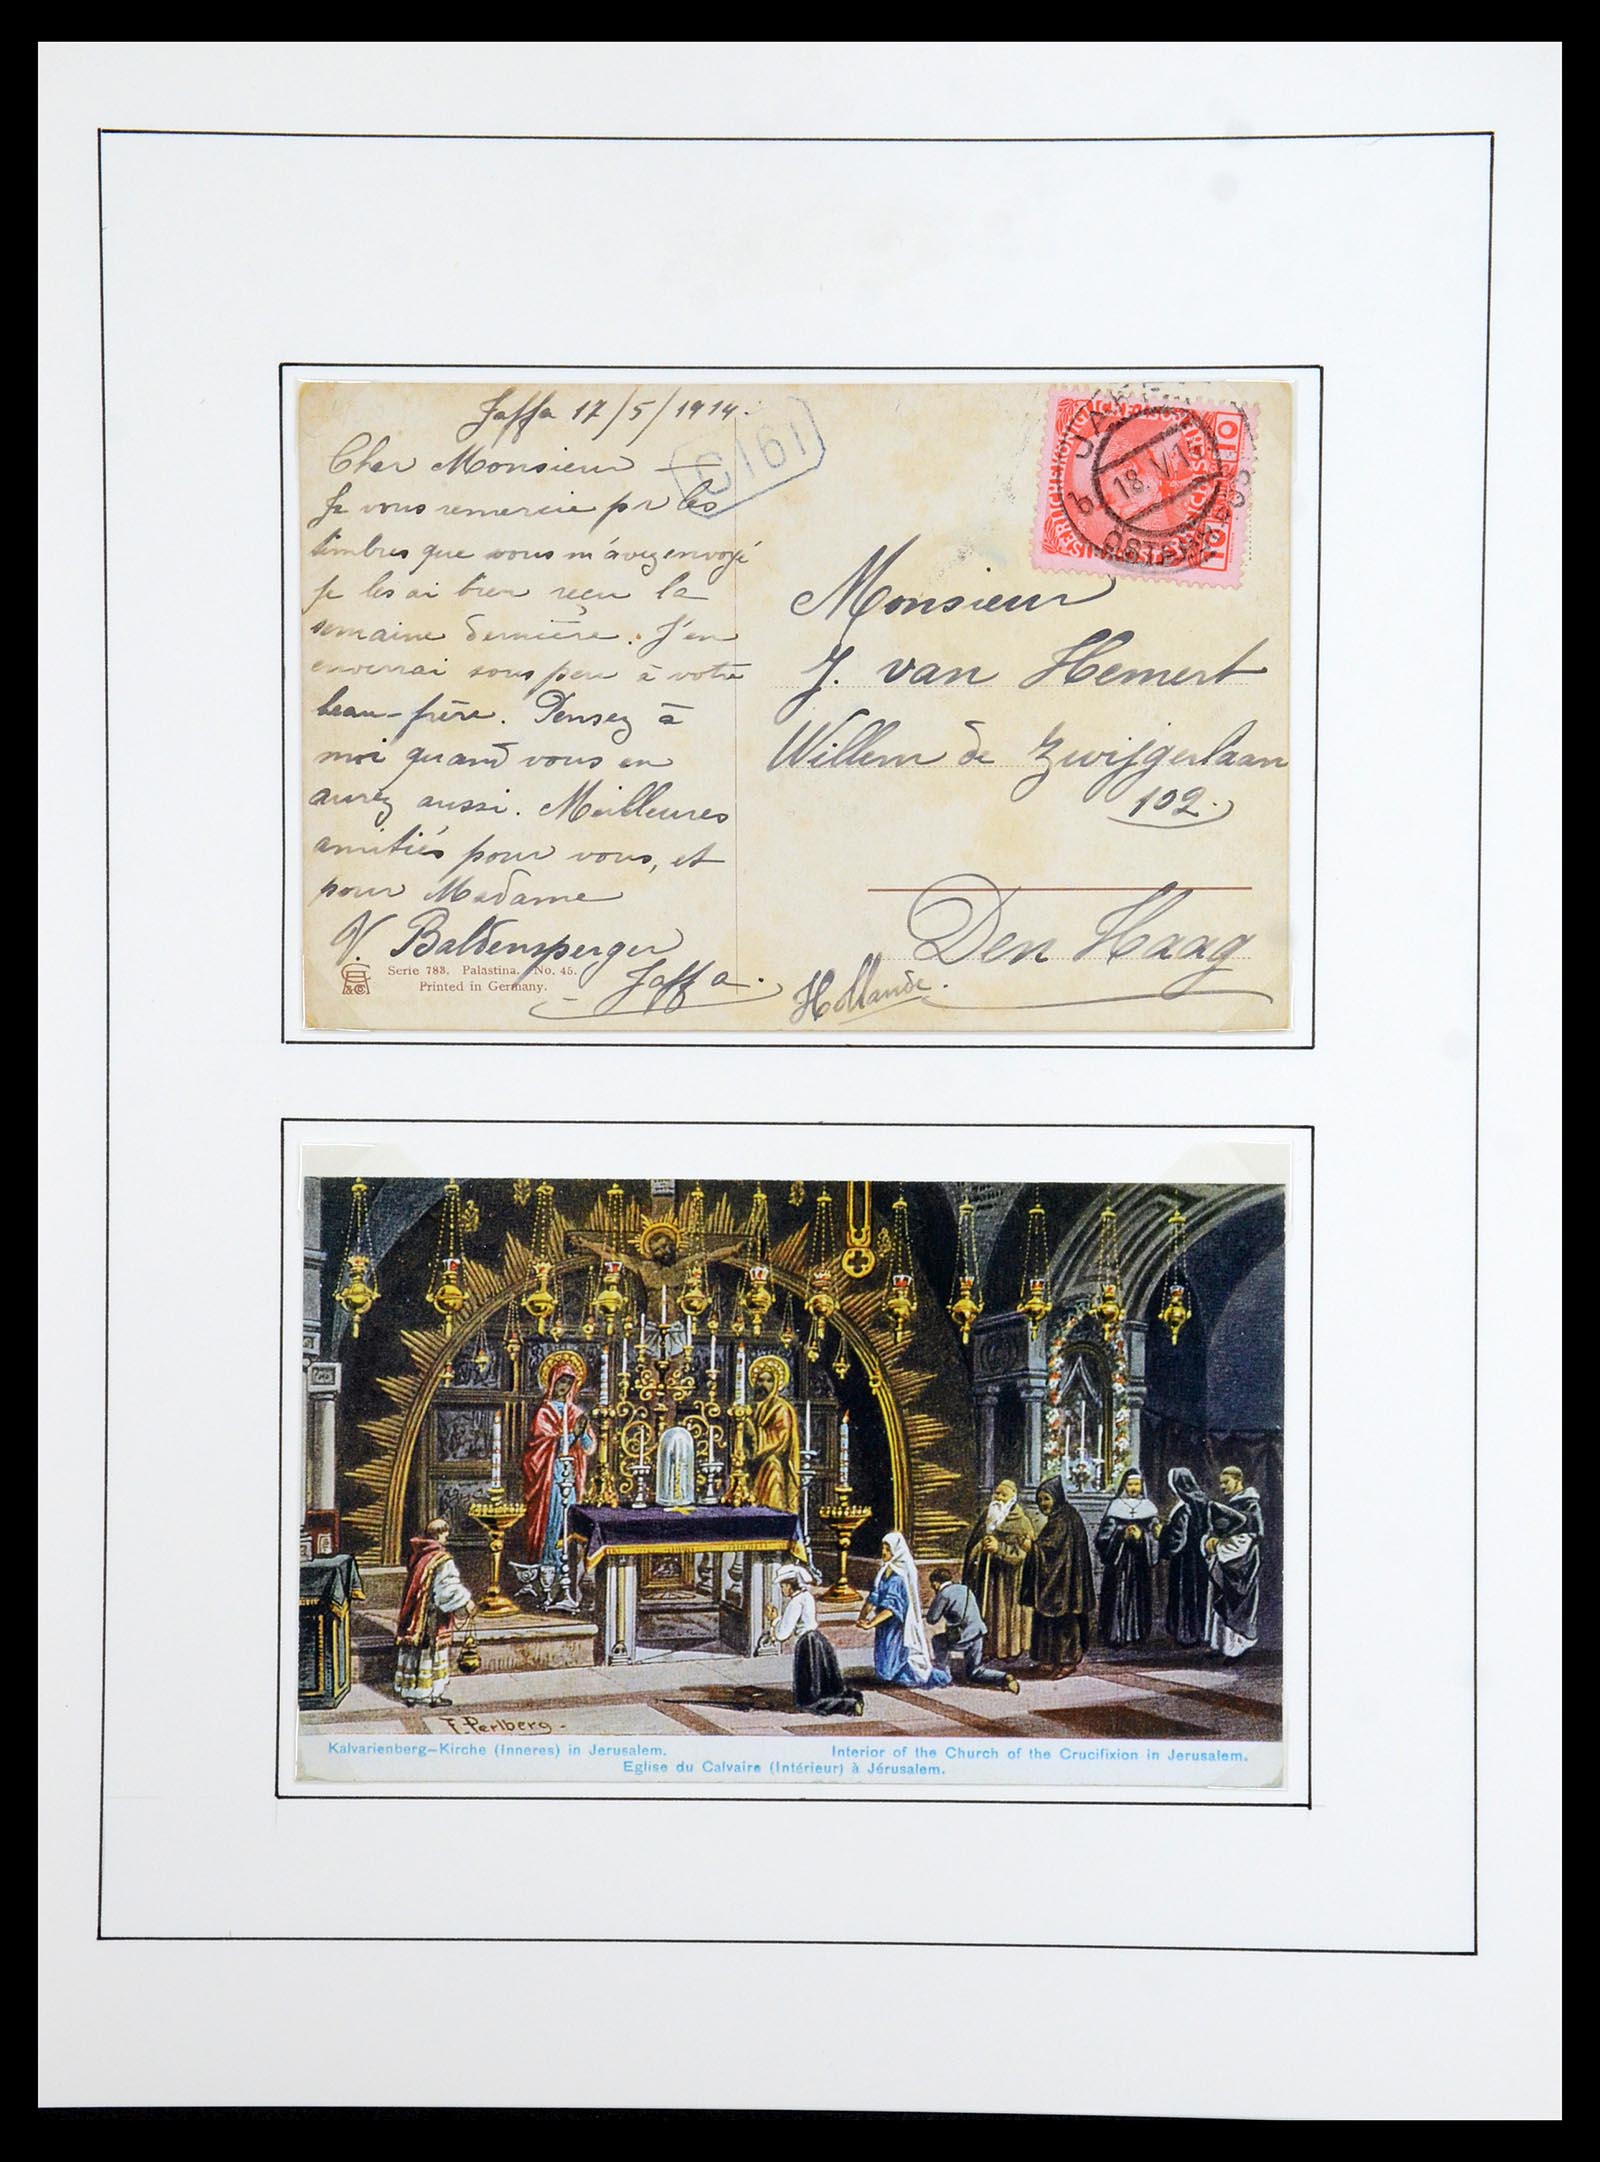 Jaffa 17/5/1914.
Cher Monsieur —
Je vous remercie pr les
timbres que vous m'avez envoyé
je les ai bien reçu la
semaine dernière. J'en
enverrai sous peu à votre
beau-frère. Pensez à
moi quand vous en
aurez aussi. Meilleures
amitiés pour vous, et
pour Madame
V. Baldensperger
Jaffa.
Serie 783. Palästina. No. 45.
Printed in Germany.
10 10
18. V. 14
b
Monsieur
J. van Hemert
Willem de Zwijgerlaan
102.
Den Haag
Hollande.
F. Perlberg.
Kalvarienberg-Kirche (Inneres) in Jerusalem.
Interior of the Church of the Crucifixion in Jerusalem.
Eglise du Calvaire (Intérieur) à Jérusalem.